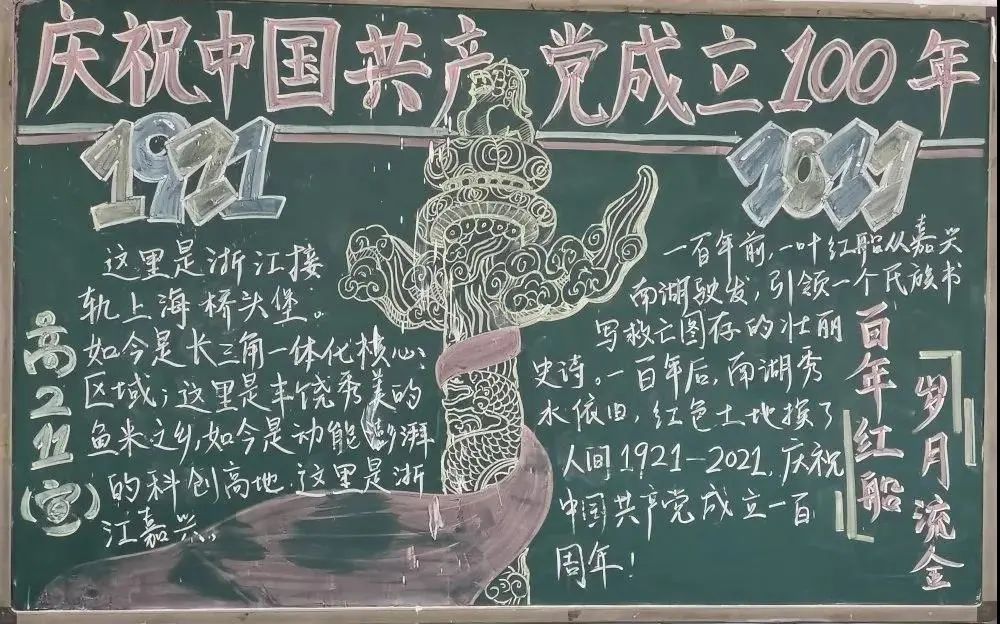 庆祝中国共产党成立100年
1921
2021
这里是浙江接
轨上海桥头堡。
如今是长三角一体化核心、
区域；这里是丰饶秀美的
鱼米之乡，如今是动能澎湃
的科创高地．这里是浙
江嘉兴。
高211(宣)
一百年前，一叶红船从嘉兴
南湖驶发，引领一个民族书
写救亡图存的壮丽
史诗。一百年后，南湖秀
水依旧，红色土地换了
人间1921—2021．庆祝
中国共产党成立一百
周年！
百年红船
岁月流金